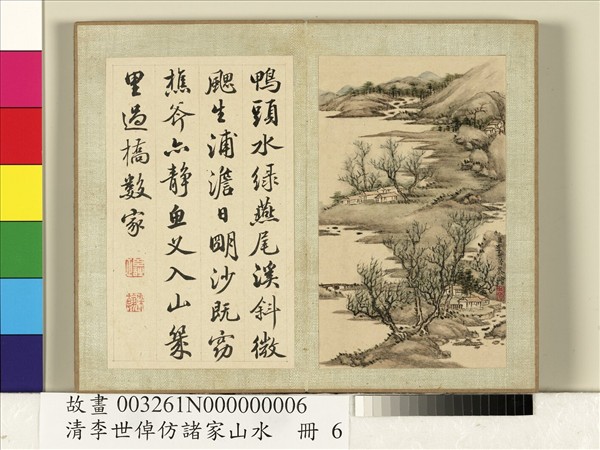 鴨頭水綠燕尾溪斜微
颸生浦澹日明沙既窈
樵斧亦靜魚义入山幾
里過橋數家
故畫 003261N000000006
清李世倬仿諸家山水 冊 6